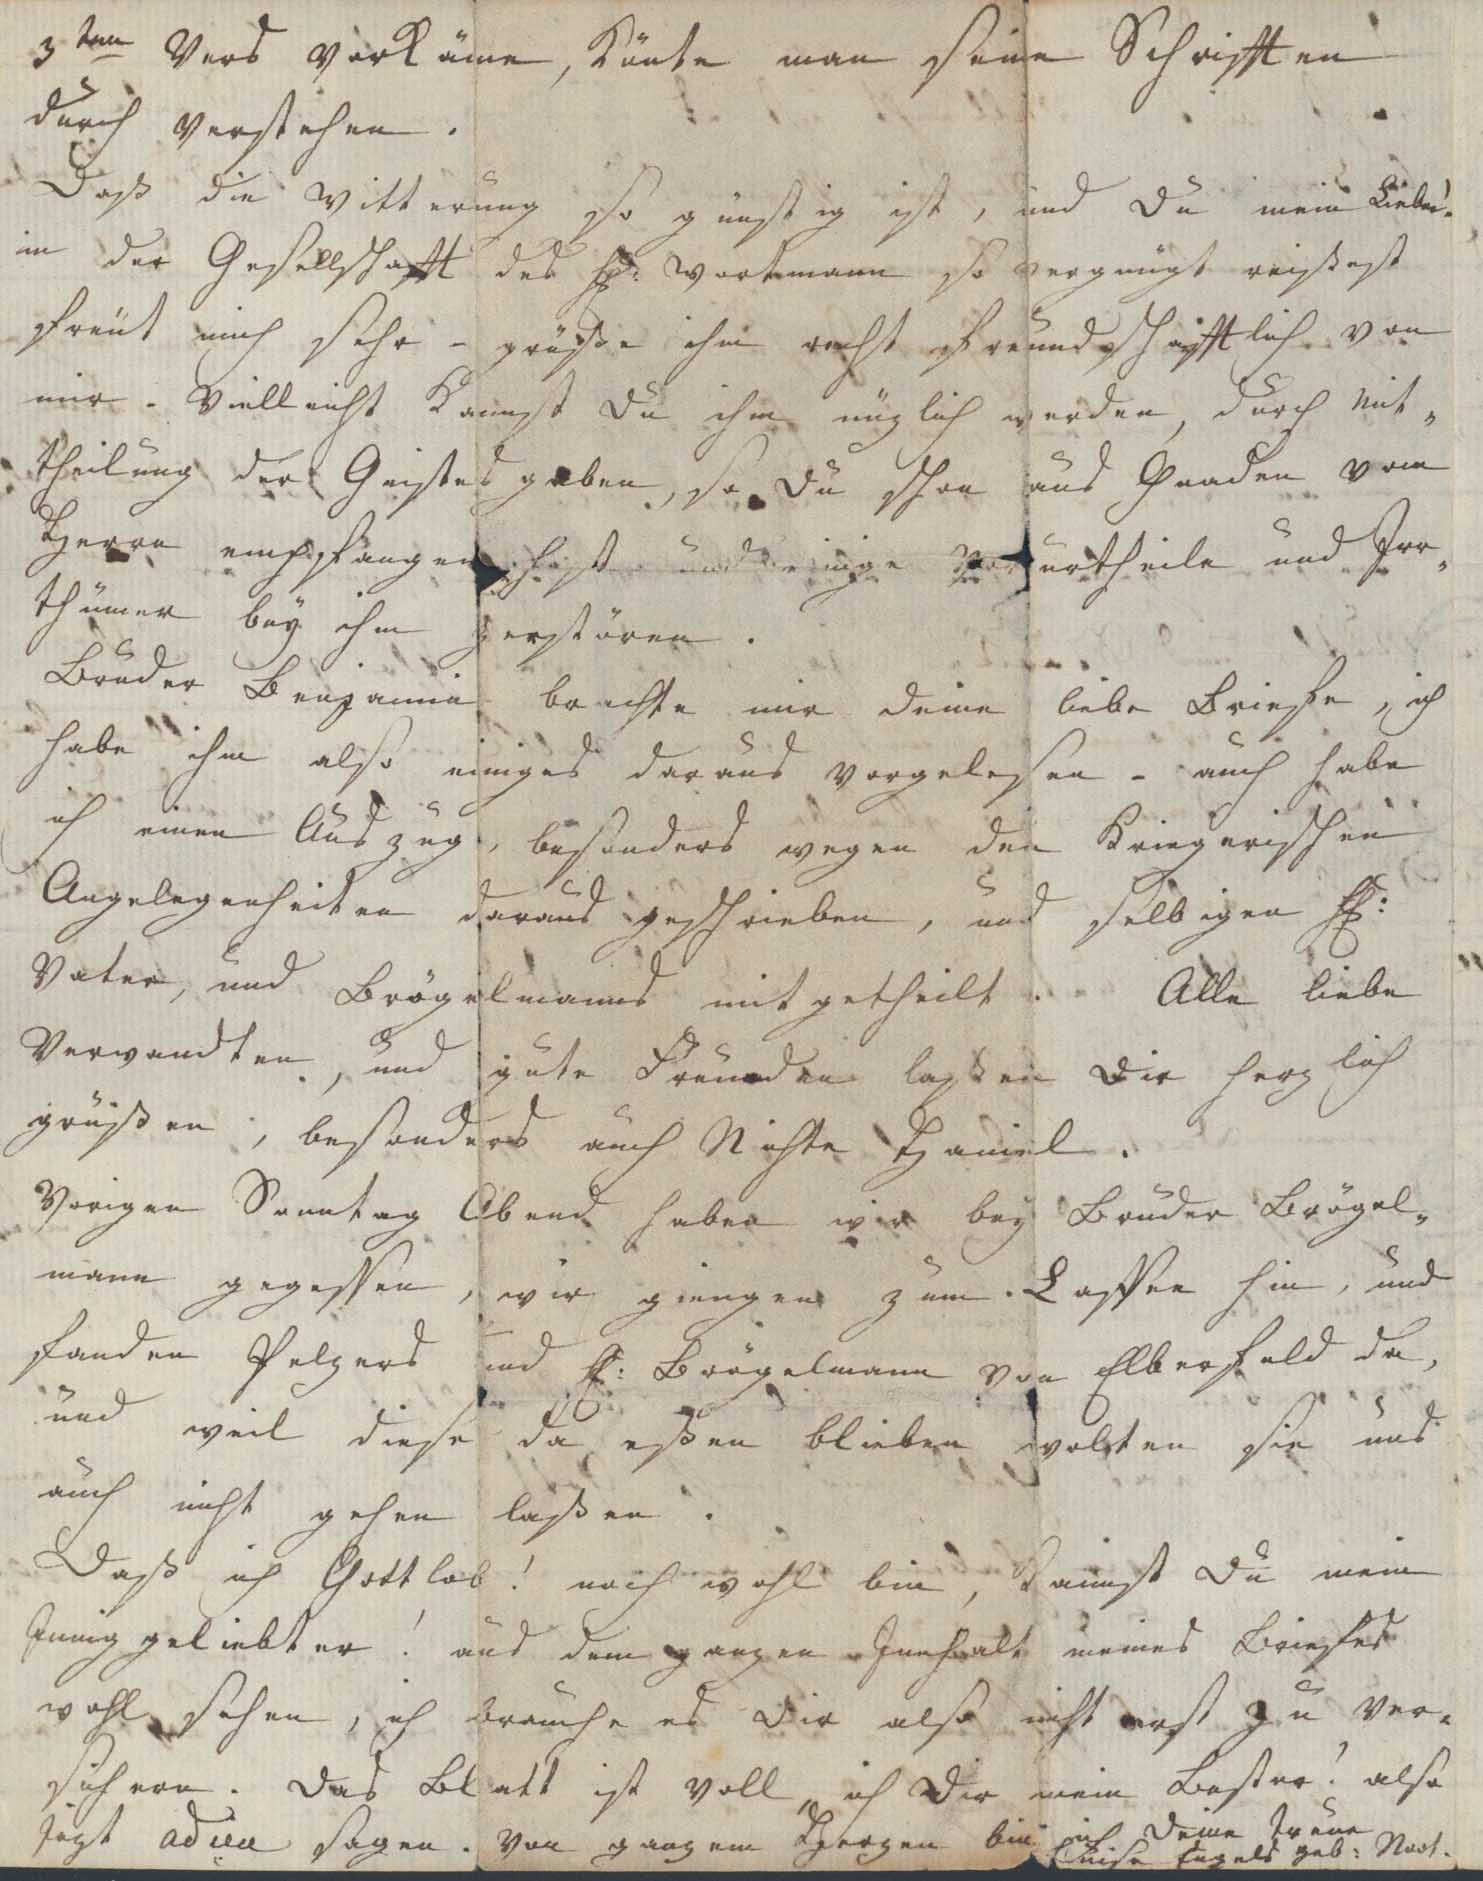 3ten Vers vorkäme, könte man seine Schrifften
durch verstehen.
Daß die Witterung so günstig ist, und Du mein Lieber
in der Gesellschafft des H: Wortmann so vergnügt reißest
freut mich sehr - grüße ihn recht freundschafftlich von
mir. Vielleicht kannst Du ihm nüzlich werden, durch Mit-
theilung der Geistesgaben, so Du schon aus Gnaden vom
Herrn empfangen hast und einige Vorurtheile und Irr-
thümer bey ihm zerstören.
Bruder Benjamin brachte mir deine liebe Briefe, ich
habe ihm also einiges daraus vorgelesen - auch habe
ich einen Auszug, besonders wegen den Kriegerischen
Angelegenheiten daraus geschrieben, und selbigen H:
Vater, und Brögelmanns mitgetheilt. Alle liebe
Verwandten, und gute Freunden laßen Dir herzlich
grüßen, besonders auch Nichte Haniel.
Vorigen Sonntag Abend haben wir bey Bruder Brögel-
mann gegessen, wir giengen zum Caffee hin, und
fanden Pelzers und H: Brögelmann von Elberfeld da,
und weil diese da eßen blieben wolten sie uns
auch nicht gehen laßen.
Daß ich Gottlob! noch wohl bin, kannst Du mein
Innig geliebter! aus dem ganzen Innhalt meines Briefes
wohl sehen, ich brauche es Dir also nicht erst zu ver-
sichern. Das Blatt ist voll, ich Dir mein Bester! also
jezt adieu sagen. Von ganzem Herzen bin ich Deine treue
Louise Engels geb: Noot.